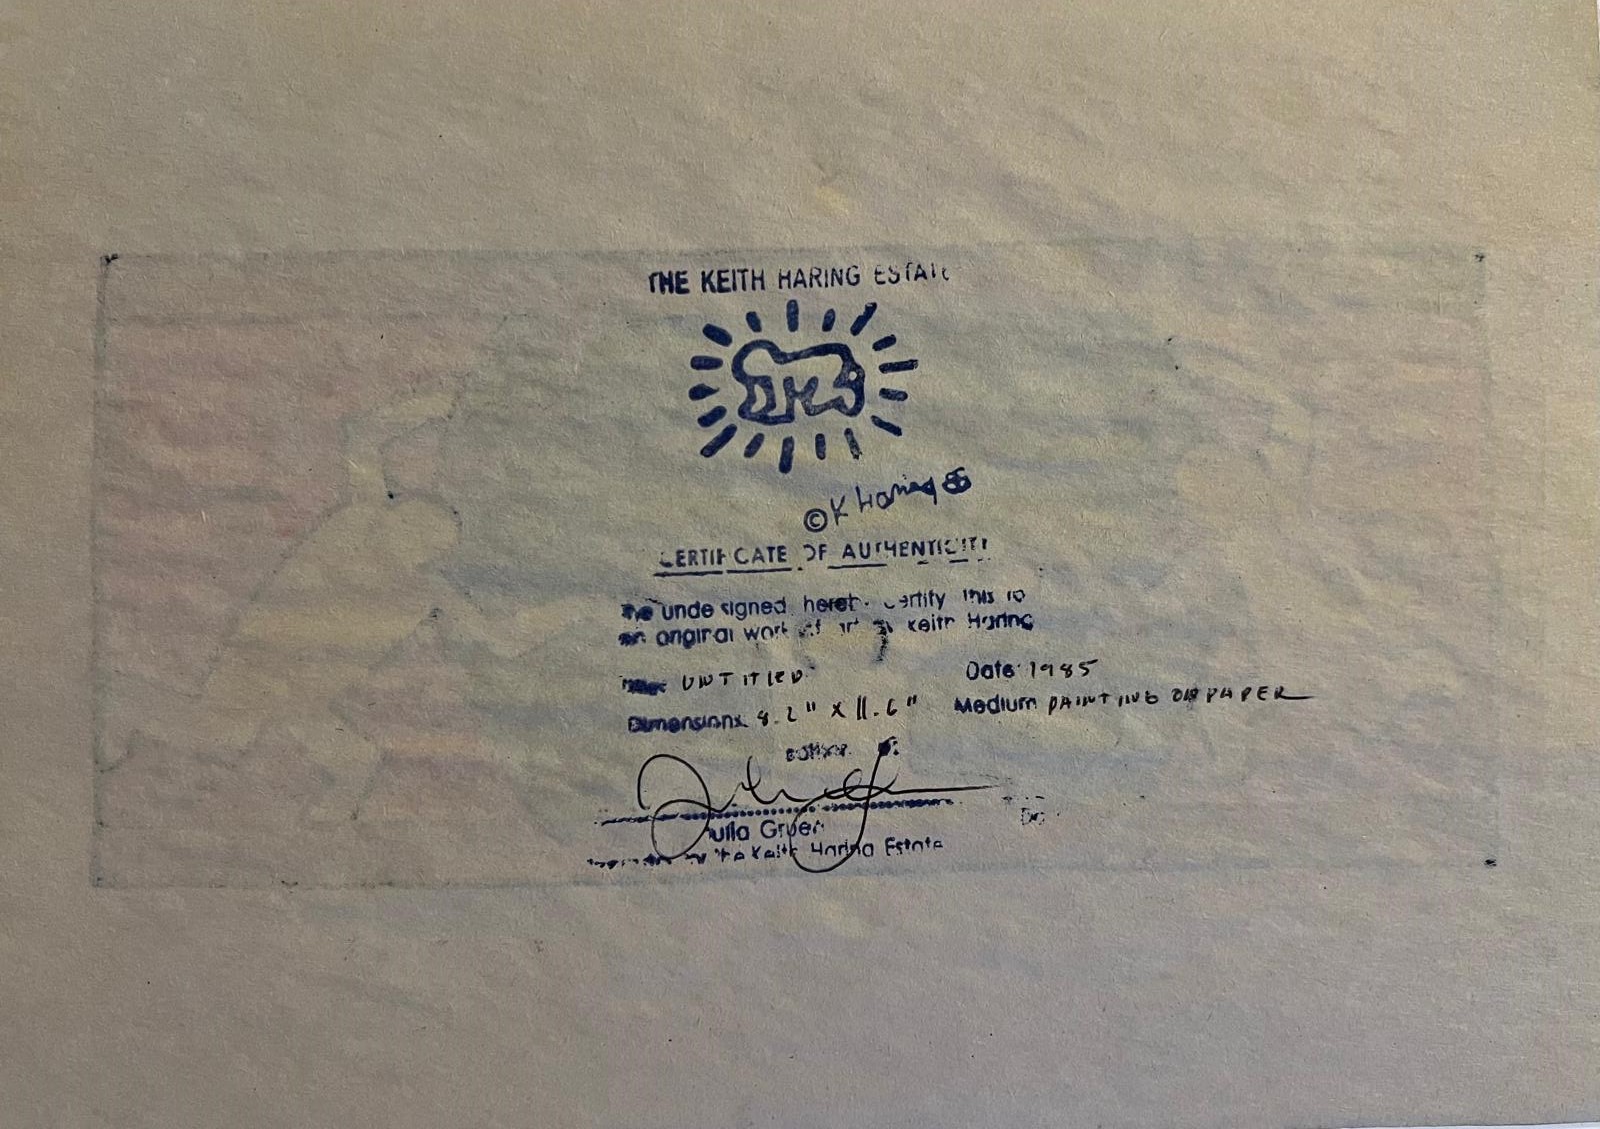 THE KEITH HARING ESTATE
© K Haring
CERTIFICATE OF AUTHENTICITY
The undersigned hereby certify this is
an original work of art by Keith Haring
UNTITLED Date: 1985
Dimensions: 8.2" X 11.6" Medium PAINTING ON PAPER
Julia Gruen
the Keith Haring Estate